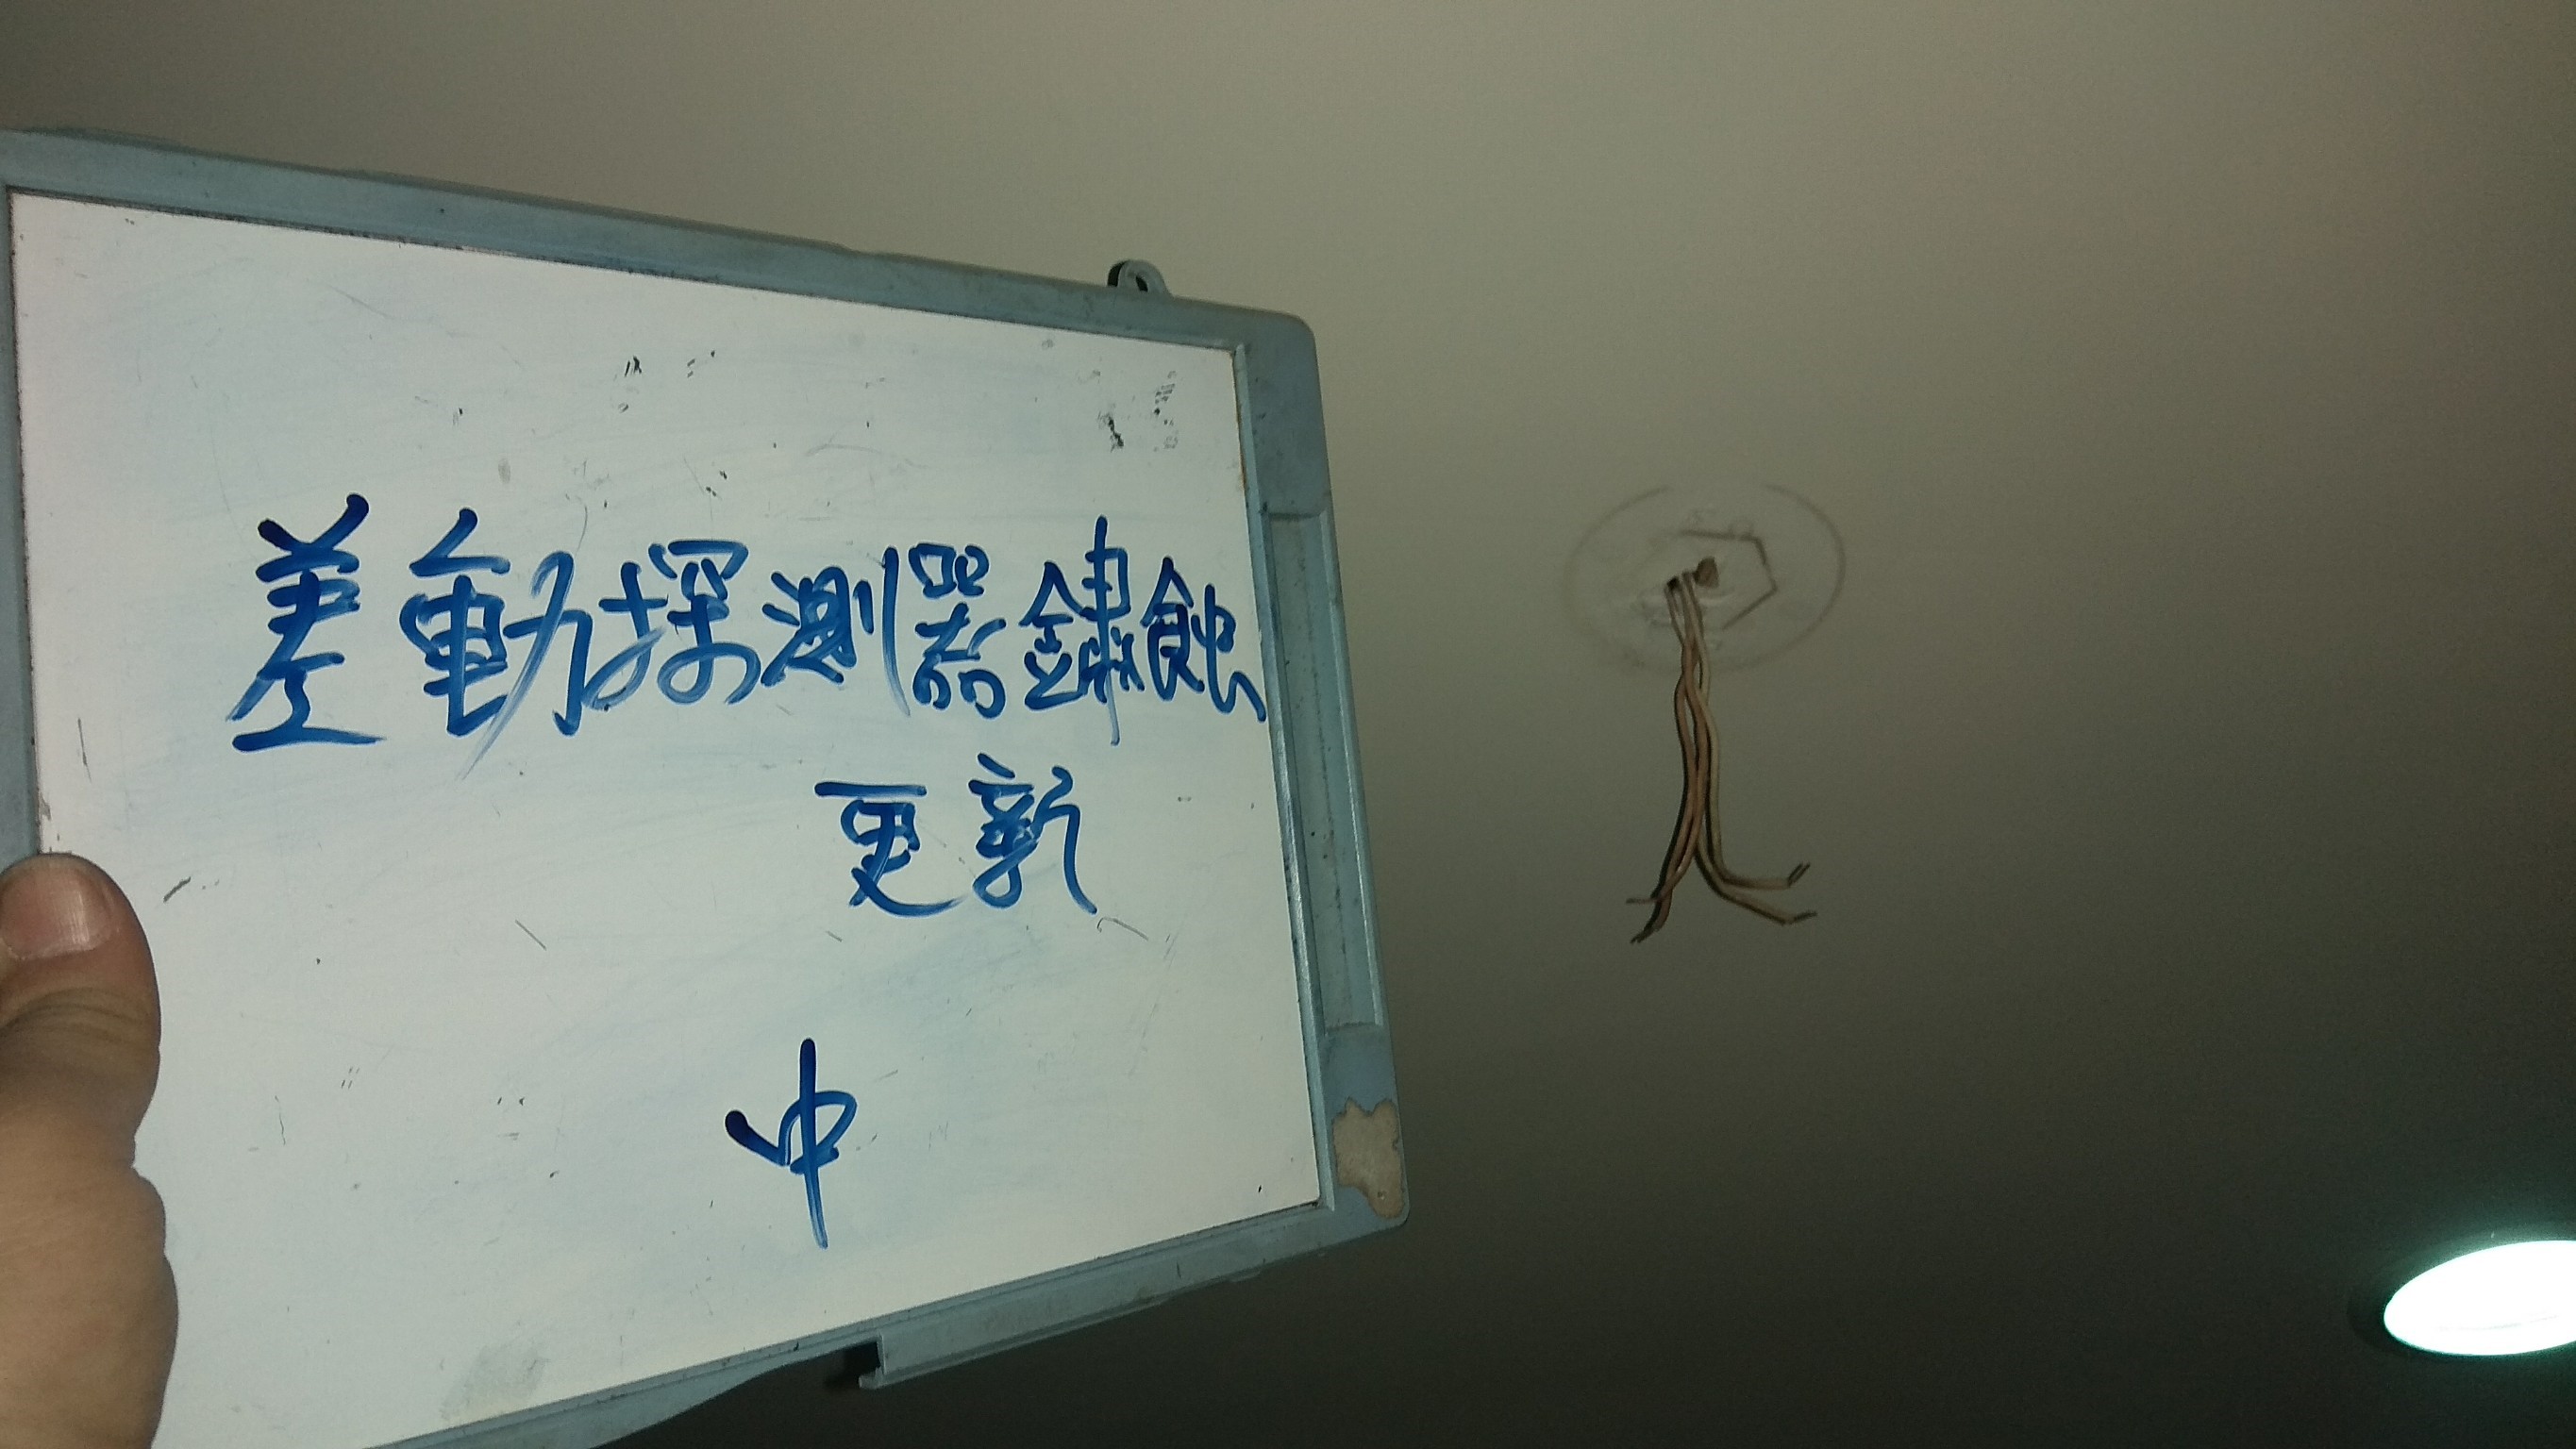 差動探測器鏽蝕
更新
中